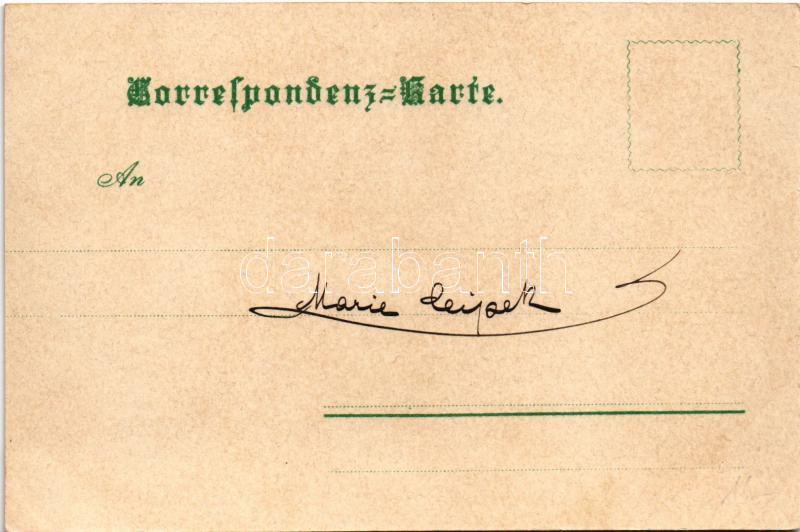 Correspondenz-Karte.
An
darabanth
Marie Leipek